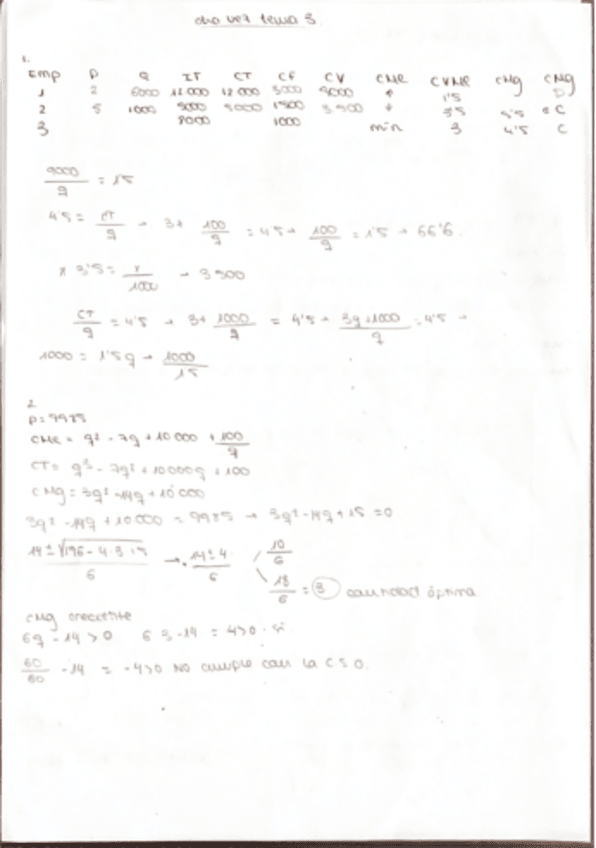 otra vez tema 3.
1.
Emp P Q IT CT CF CV CMe CVMe CMg CMg
1 2 6000 12000 12000 3000 9000 1'5 D
2 5 1000 5000 5000 1500 3500 3'5 5'5 C
3 1000 min 3 4'5 C
9000/q = 1'5
4'5 = CT/q → 3+ 100/q = 4'5 → 100/q = 1'5 → 66'6.
x 3'5 = x/1000 → 3500
CT/q = 4'5 → 3+ 1000/q = 4'5 → 3q+1000/q = 4'5 →
1000 = 1'5q → 1000/15
2
P = 9985
CMe = q² - 7q + 10000 + 100/q
CT = q³ - 7q² + 10000q + 100
CMg = 3q² - 14q + 10000
3q² - 14q + 10000 = 9985 → 3q² - 14q + 15 = 0
14 ± √196 - 4·3·15/6 → 14 ± 4/6 10/6
18/6 = 3 cantidad óptima
CMg creciente
6q - 14 > 0 6·3 - 14 = 4 > 0 · si
60/60 - 14 = -4 > 0 No cumple con la CSO.